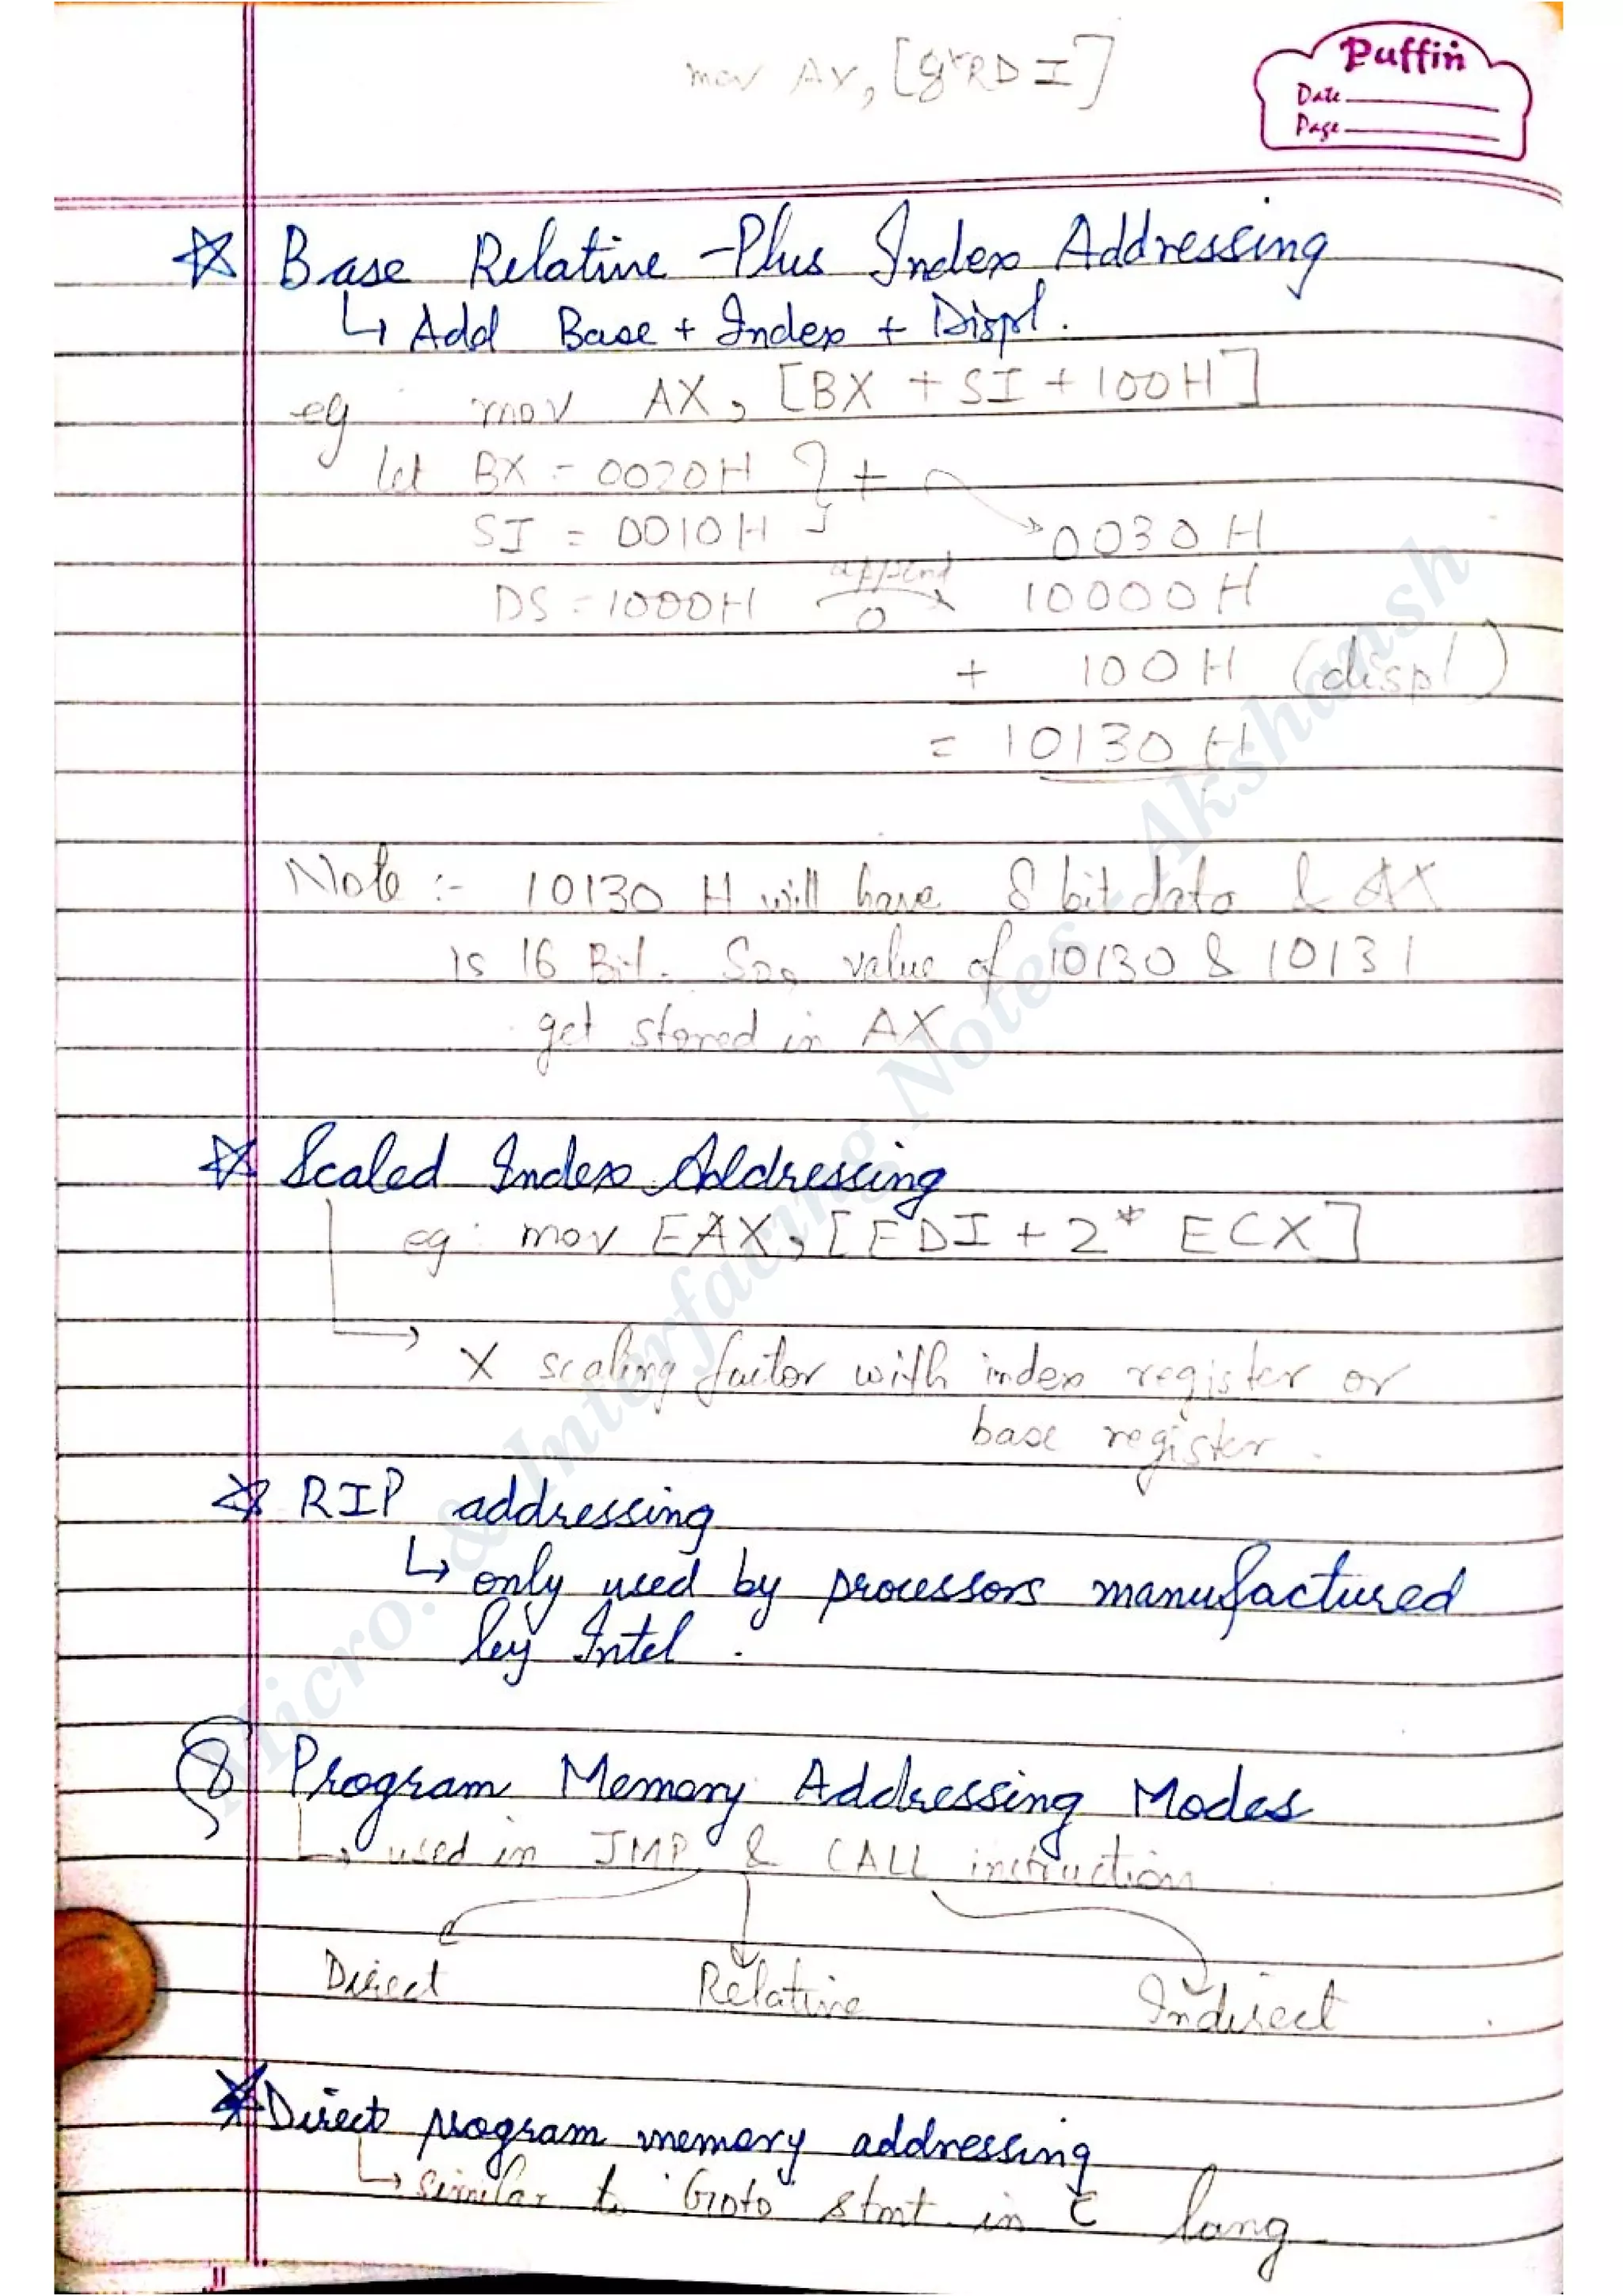 mov AX, [8*RDI]
Puffin
Date
Page
Base Relative - Plus Index Addressing
↳ Add Base + Index + Displ.
eg mov AX, [BX + SI + 100H]
let BX = 0020H } +
SI = 0010H → 0030 H
DS = 1000H append 0 → 10000 H
+ 100 H (displ)
= 10130 H
Note :- 10130 H will have 8 bit data & AX
is 16 Bit. So, value of 10130 & 10131
get stored in AX
Scaled Index Addressing
eg: mov EAX, [EDI + 2* ECX]
→ X scaling factor with index register or
base register.
RIP addressing
↳ only used by processors manufactured
by Intel.
8 Program Memory Addressing Modes
↳ used in JMP & CALL instruction
Direct Relative Indirect
Direct program memory addressing
↳ similar to Goto stmt in C lang
Micro. & Interfacing Notes - Akshansh